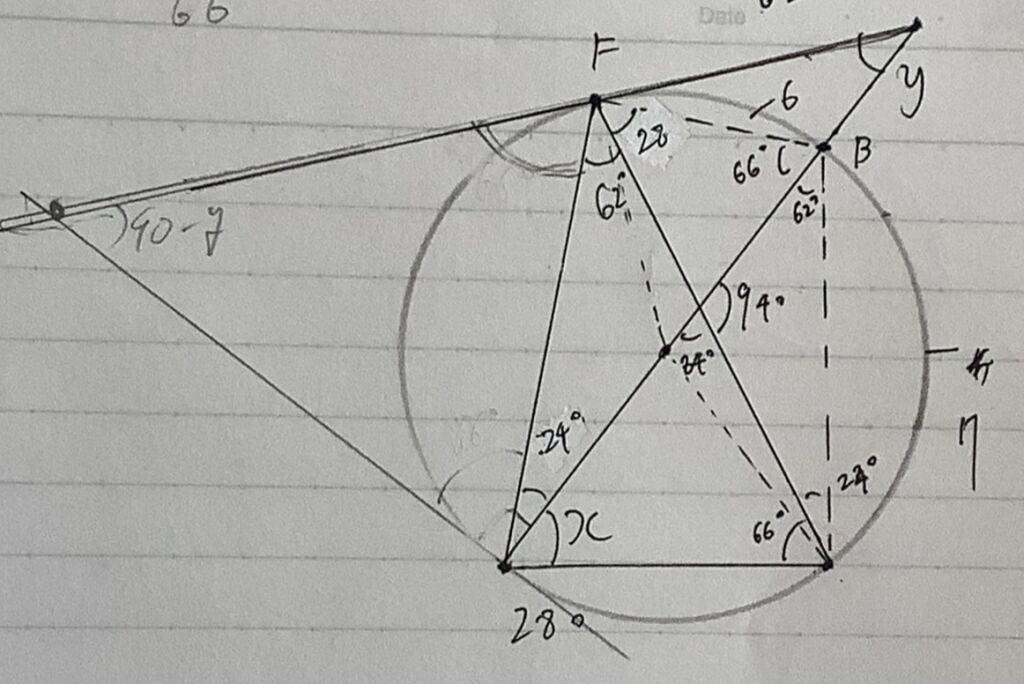 66
Date
F
6
y
28
66°
B
62°
62°
90-y
94°
34°
24°
24°
x
66°
28°